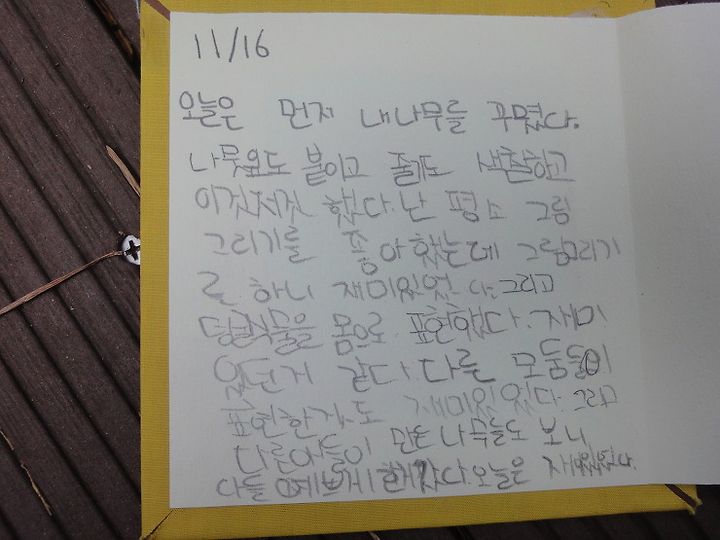 11/16
오늘은 먼저 내나무를 꾸몄다.
나뭇잎도 붙이고 줄기도 색칠하고
이것저것 했다. 난 평소 그림
그리기를 좋아했는데 그림그리기
를 하니 재미있었다. 그리고
덩굴식물을 몸으로 표현했다. 재미
있던거 같다. 다른 모둠들이
표현한것도 재미있었다. 그리고
다른아이들이 만든 나무들도 보니
다들 예쁘게 한 다. 오늘은 재미있었다.